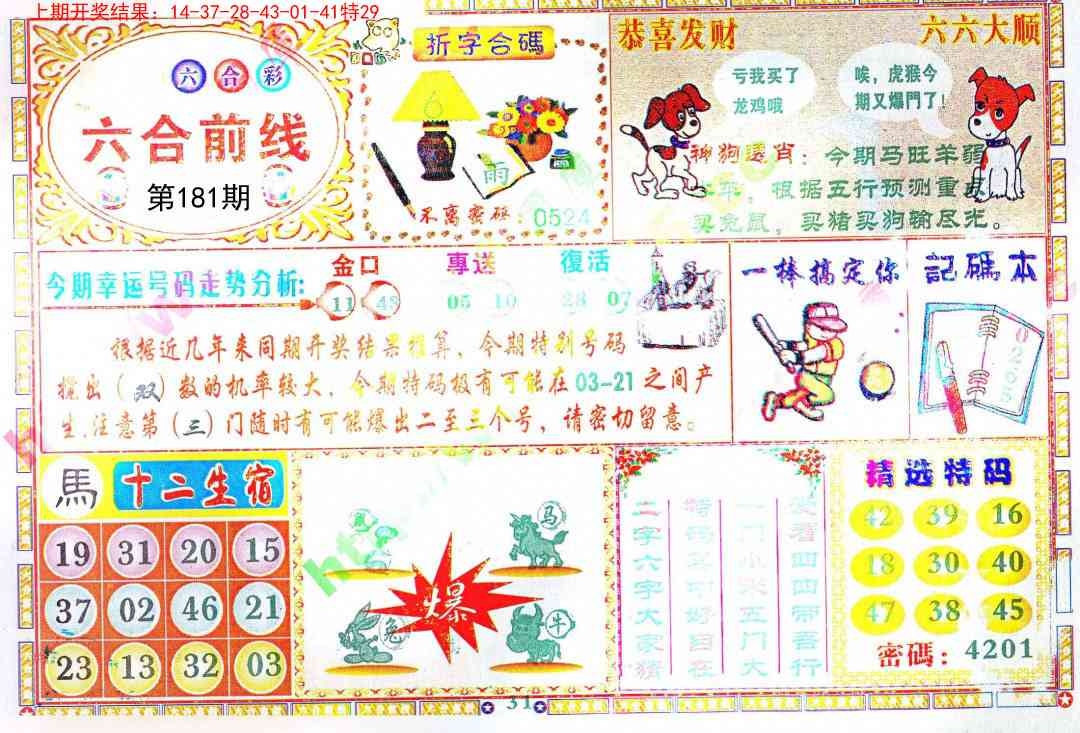 上期开奖结果：14-37-28-43-01-41特29
六合彩
六合前线
第181期
折字合碼
雨
不离密码：0524
恭喜发财
六六大顺
亏我买了
龙鸡哦
唉，虎猴今
期又爆門了！
神狗透肖：今期马旺羊弱
根据五行预测重点
买兔鼠，买猪买狗输尽光。
今期幸运号码走势分析:
金口
11 43
專送
05 10
復活
28 07
根据近几年来同期开奖结果推算，今期特别号码
搅出（双）数的机率较大，今期特码极有可能在03-21之间产
生.注意第（三）门随时有可能爆出二至三个号，请密切留意。
一棒搞定你
記碼本
0265
馬
十二生宿
19 31 20 15
37 02 46 21
23 13 32 03
马
兔
牛
爆
二字六字大家猜
精选特码
42 39 16
18 30 40
47 38 45
密碼：4201
31